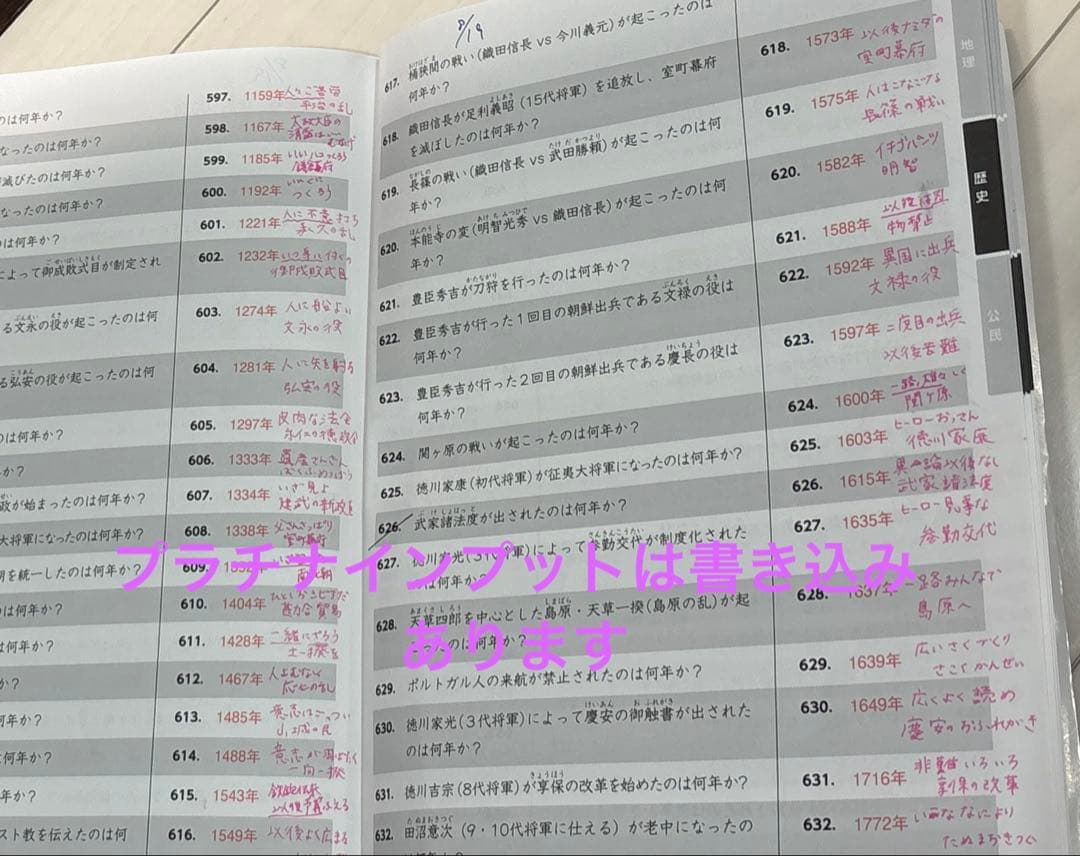 のは何年か？
なったのは何年か？
滅びたのは何年か？
なったのは何年か？
によって御成敗式目が制定され
る文永の役が起こったのは何
る弘安の役が起こったのは何
のは何年か？
年か？
政が始まったのは何年か？
大将軍になったのは何年か？
朝を統一したのは何年か？
のは何年か？
は何年か？
か？
年か？
は何年か？
年か？
スト教を伝えたのは何
597. 1159年
平治の乱
598. 1167年 太政大臣の
599. 1185年 いいハコつくろう
鎌倉幕府
600. 1192年 いいくに
つくろう
601. 1221年 人に不意打ち
承久の乱
602. 1232年
御成敗式目
603. 1274年 人に船よい
文永の役
604. 1281年 人に矢を射る
弘安の役
605. 1297年 皮肉な法令
永仁の徳政令
606. 1333年
607. 1334年 いざ見よ
建武の新政
608. 1338年
室町幕府
609.
610. 1404年
勘合貿易
611. 1428年 一緒にでろう
土一揆
612. 1467年 人よむなく
応仁の乱
613. 1485年
614. 1488年
一向一揆
615. 1543年
以後予算ふえる
616. 1549年 以後よく広まる
8/19
617. 桶狭間の戦い(織田信長 VS 今川義元)が起こったのは
何年か？
618. 織田信長が足利義昭(15代将軍)を追放し、室町幕府
を滅ぼしたのは何年か？
619. 長篠の戦い(織田信長 VS 武田勝頼)が起こったのは何
年か？
620. 本能寺の変(明智光秀 VS 織田信長)が起こったのは何
年か？
621. 豊臣秀吉が刀狩を行ったのは何年か？
622. 豊臣秀吉が行った1回目の朝鮮出兵である文禄の役は
何年か？
623. 豊臣秀吉が行った2回目の朝鮮出兵である慶長の役は
何年か？
624. 関ヶ原の戦いが起こったのは何年か？
625. 徳川家康(初代将軍)が征夷大将軍になったのは何年か？
626. 武家諸法度が出されたのは何年か？
627. 徳川家光(3代将軍)によって参勤交代が制度化された
のは何年か？
628. 天草四郎を中心とした島原・天草一揆(島原の乱)が起
こったのは何年か？
629. ポルトガル人の来航が禁止されたのは何年か？
630. 徳川家光(3代将軍)によって慶安の御触書が出された
のは何年か？
631. 徳川吉宗(8代将軍)が享保の改革を始めたのは何年か？
632. 田沼意次(9・10代将軍に仕える)が老中になったの
は何年か？
618. 1573年 以後ナミダの
室町幕府
619. 1575年 人はこなごなになる
長篠の戦い
620. 1582年 イチゴパンツ
明智
621. 1588年
622. 1592年 異国に出兵
文禄の役
623. 1597年 二度目の出兵
以後苦難
624. 1600年 一路雄々しく
関ヶ原
625. 1603年 ヒーローおっさん
徳川家康
626. 1615年 異論以後なし
武家諸法度
627. 1635年 ヒーロー見事な
参勤交代
628. 1637年 一路みんなで
島原へ
629. 1639年 広いさくづくり
さこくかんせい
630. 1649年 広くよく読め
慶安のおふれがき
631. 1716年 非難いろいろ
享保の改革
632. 1772年
たぬまおきつぐ
地理
歴史
公民
プラチナインプットは書き込み
あります